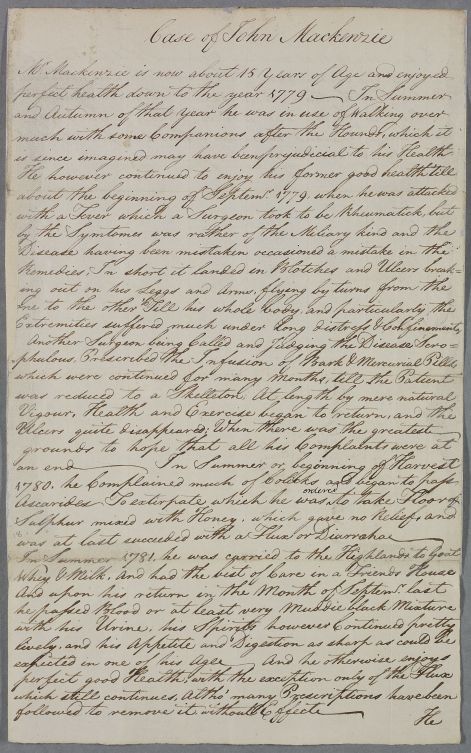 Case of John Mackenzie
Mr. Mackenzie is now about 15 Years of Age and enjoyed
perfect health down to the year 1779 — In Summer
and Autumn of that year he was in use of Walking over
much with some Companions after the Hounds, which it
is since imagined may have been prejudicial to his Health
He however continued to enjoy his former good health till
about the beginning of Septemr. 1779. when he was attacked
with a Fever which a Surgeon took to be Rheumatick, but
by the Symtoms was rather of the Mileary kind and the
Disease having been mistaken occasioned a mistake in the
Remedies. In short it landed in Blotches and Ulcers break-
ing out on his Leggs and Arms, flying by turns from the
One to the other Till his whole Body, and particularly the
Extremities suffered much under Long distress & Confinement,
Another Surgeon being Called and Judging the Disease Scro-
phulous Prescribed the Infusion of Bark & Mercurial Pills
which were continued for many Months, till the Patient
was reduced to a Skelleton. At length by mere natural
Vigour, Health and Exercise began to return, and the
Ulcers quite disappeared, When there was the greatest
grounds to hope that all his Complaints were at
an end — In Summer or beginning of Harvest
1780. he Complained much of Colicks and began to pass
Ascarides To exterpate which he was ordered to take Floor of
Sulphur mixed with Honey, which gave no Relief, and
was at last succeeded with a Flux or Diarrahea
In Summer 1781. he was carried to the Highlands to Goat
Whey & Milk, And had the best of Care in a Friends House
And upon his return in the Month of Septemr. last
he passed Blood or at least very Muddie black Mixture
with his Urine, his Spirits however Continued pretty
lively, and his Appetite and Digestion as sharp as could be
expected in one of his Age — And he otherwise enjoys
perfect good Health with the exception only of the Flux
which still continues, Altho' many Prescriptions have been
followed to remove it without Effecte —
He